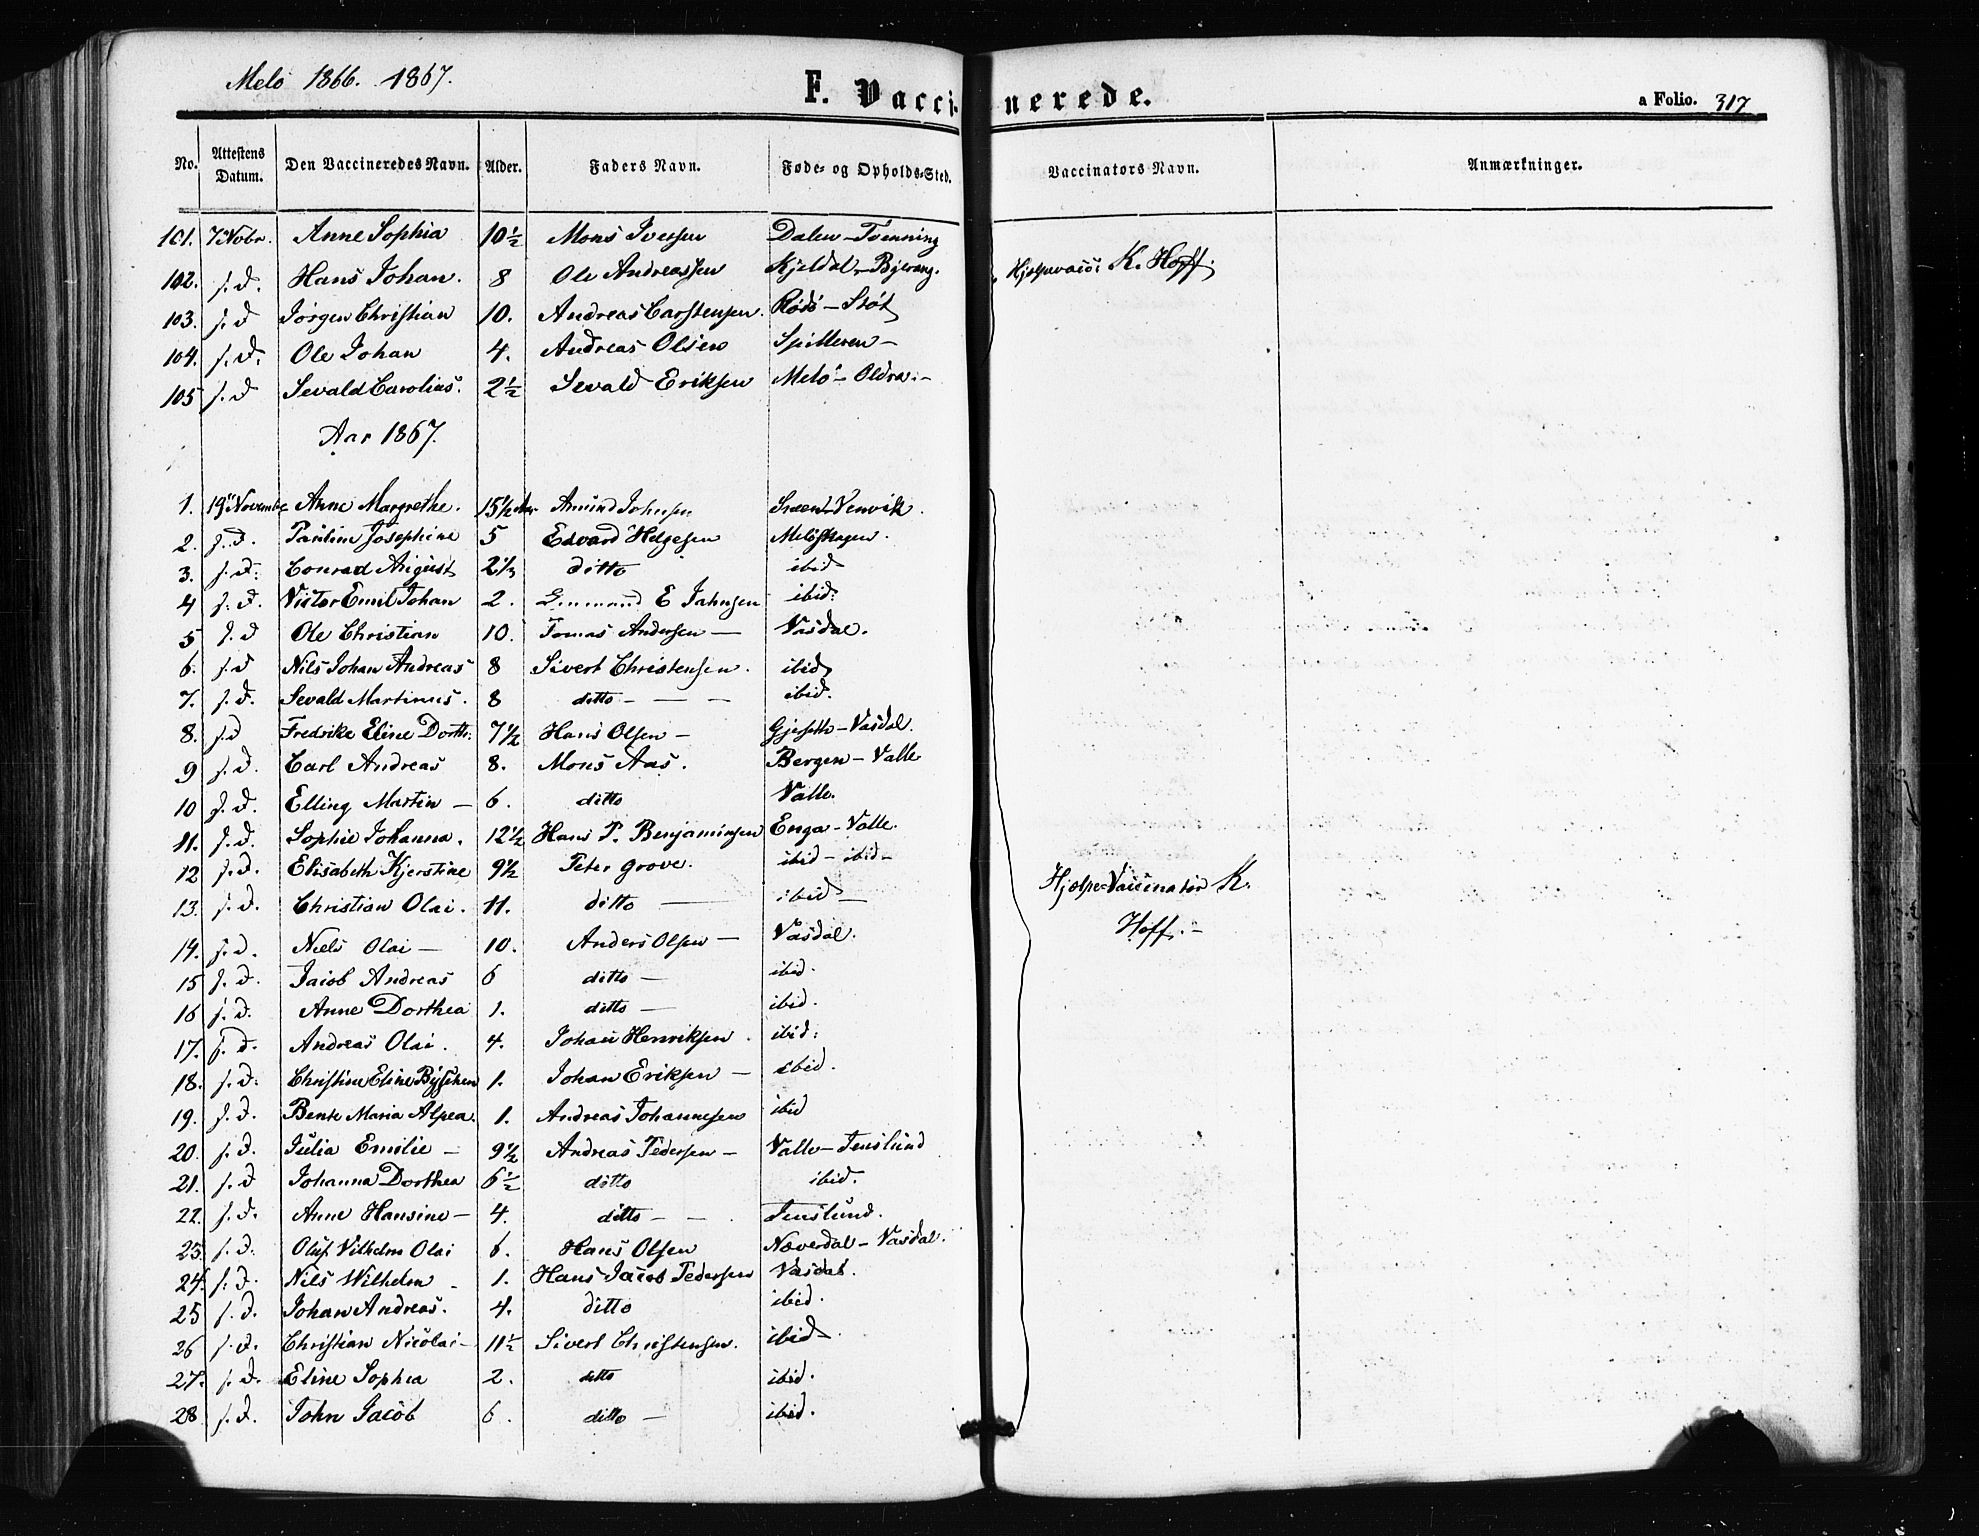 Melö 1866. 1867.
F. Vaccinerede.
a Folio. 317
No. Attestens Datum. Den Vaccineredes Navn. Alder. Faders Navn. Føde- og Opholds-Sted. Vaccinators Navn. Anmærkninger.
101. 7 Novbr. Anne Sophia 10½ Mons Iversen Dalen - Tvenning
102. s. d. Hans Johan. 8 Ole Andreassen Kjeldal - Hjelpevacci K. Hoff.
103. s. d Jørgen Christian 10. Andreas Carstensen. Rödö - Støt
104. s. d. Ole Johan 4. Andreas Olsen Spilderen -
105 s. d Sevald Carolius. 2½ Sevald Eriksen Melö - Oldra. -
Aar 1867.
1. 19 Novembr Anne Margrethe. 15½ Aar Amund Johnsen Venvik.
2. s. d. Pauline Josephine 5 Edvard Helgesen Melöskagen.
3. s. d. Conrad August 2⅓ ditto ibid
4 s. d. Victor Emil Johan 2. E Jahnsen ibid.
5 s. d Ole Christian 10. Tomas Andersen - Vasdal.
6. s. d Nils Johan Andreas 8 Sivert Christensen. ibid
7. s. d. Sevald Martinus. 8 ditto - - - ibid.
8. s. d Fredrike Eline Dorth. 7½ Hans Olsen - Gjerseth - Vasdal.
9 s. d. Carl Andreas 8. Mons Aas. Bergen - Valle
10 s. d. Elling Martin - 6. ditto Valle.
11. s. d. Sophie Johanna. 12½ Hans P. Benjaminsen Enga - Valle.
12 s. d. Elisabeth Kjerstine 9½ Peter Grove. ibid - ibid -
13. s. d. Christian Olai. 11. ditto - ibid - Hjelpe-Vaccinatør K.
Hoff. -
14. s. d. Niels Olai - 10. Anders Olsen - Vasdal.
15 s. d. Jacob Andreas 6 ditto - ibid.
16 s. d. Anne Dorthea 1. ditto - ibid.
17. s. d. Andreas Olai. 4. Johan Henriksen. ibid.
18. s. d. Christine Eline 1. Johan Eriksen - ibid.
19. s. d. Bente Maria Alpea. 1. Andreas Johannesen ibid
20. s. d. Julia Emilie - 9½ Andreas Pedersen - Valle - Jenslund
21. s. d Johanna Dorthea 6½ ditto ibid.
22. s. d. Anne Hansine - 4. ditto - - Jenslund.
23. s. d. Oluf Vilhelm Olai 6. Hans Olsen Næverdal - Vasdal.
24. s. d. Nils Wilhelm - 1. Hans Jacob Pedersen Vasdal.
25 s. d. Johan Andreas. 4. ditto ibid.
26 s. d. Christian Nicolai - 11½ Sivert Christensen. ibid.
27. s. d. Eline Sophia 2. ditto ibid.
28 s. d. John Jacob 6. ditto - ibid.